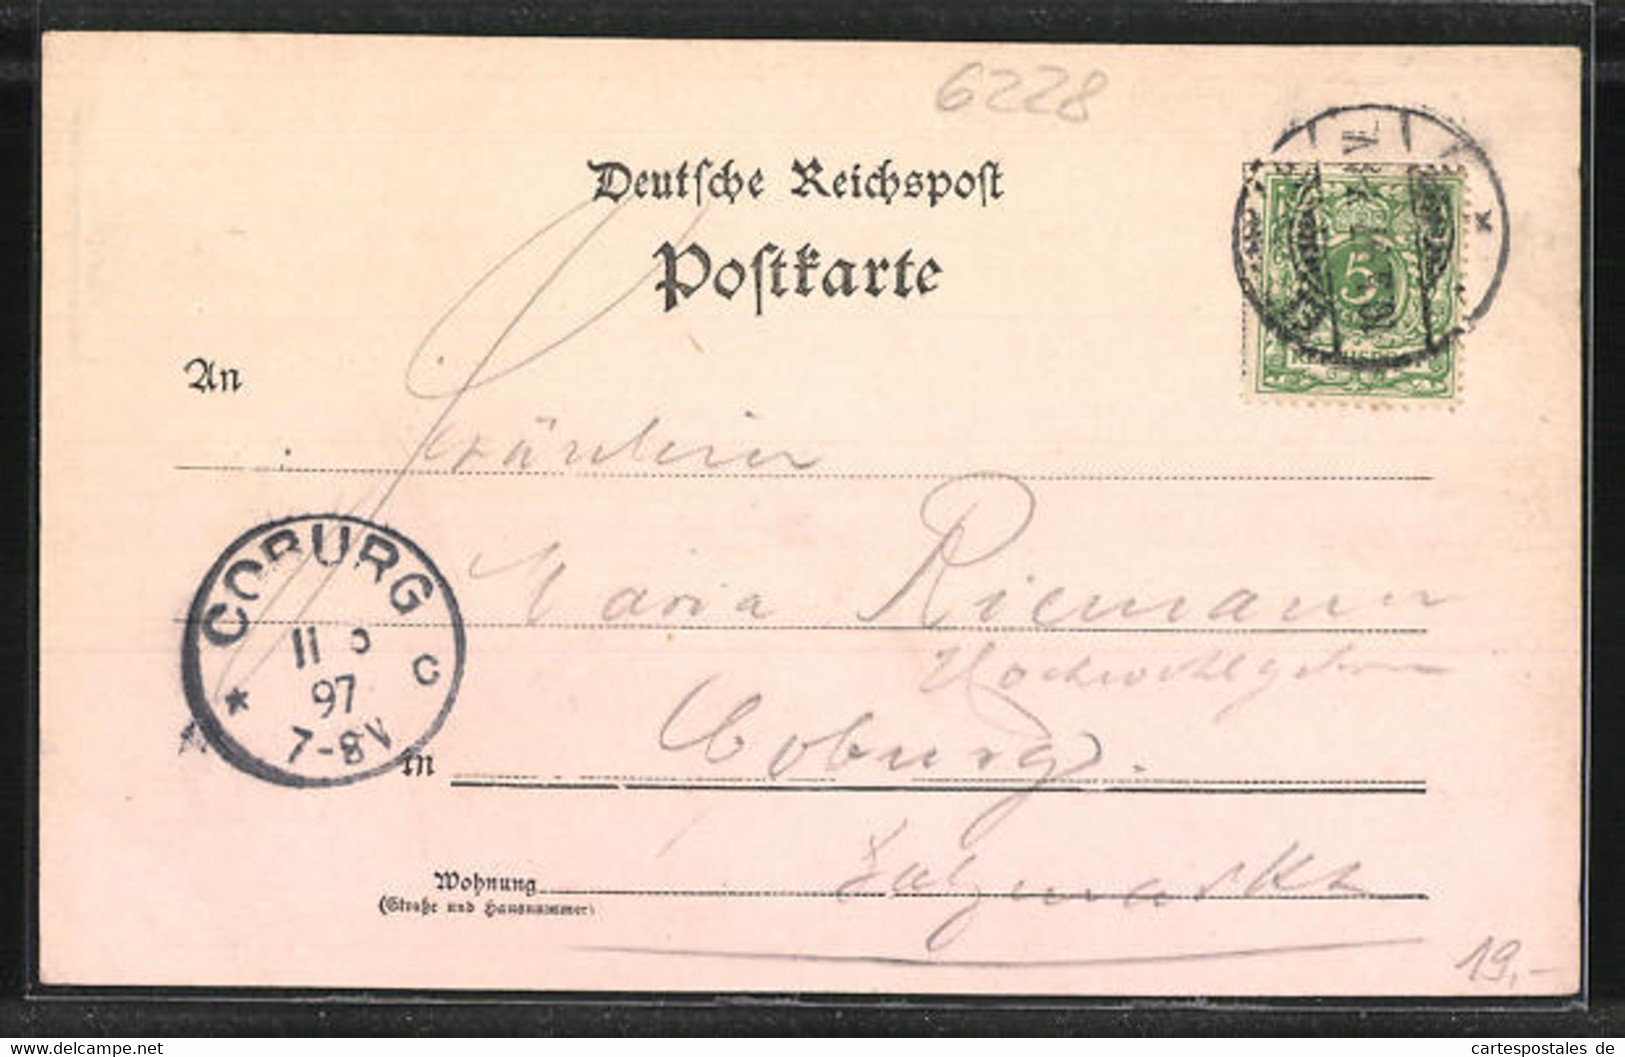 6228
Deutſche Reichspoſt
Poſtkarte
5
An
Fräulein
COBURG
11 5
97
7-8V
* C
Maria Riemann
Hochwohlgeboren
in Coburg.
Wohnung Salzmarkt
(Straße und Hausnummer)
19,-
Delcampe.net
cartespostales de